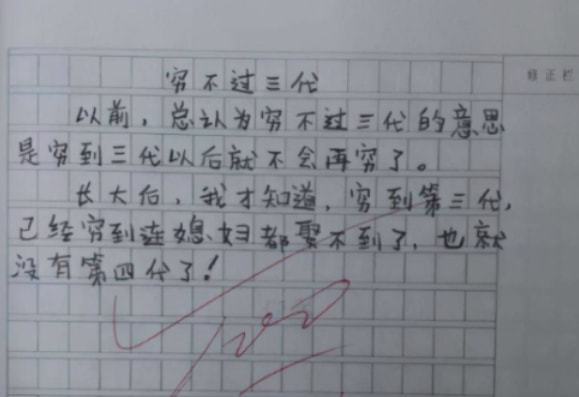 修正栏
穷不过三代
以前，总认为穷不过三代的意思
是穷到三代以后就不会再穷了。
长大后，我才知道，穷到第三代，
已经穷到连媳妇都娶不到了，也就
没有第四代了！
100